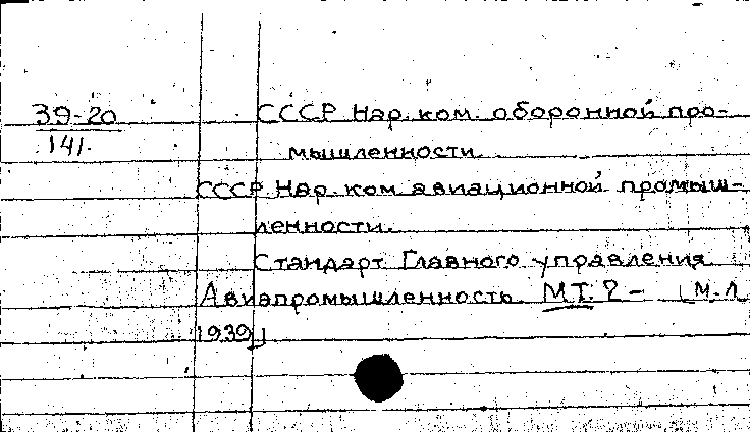 39-20
141.
СССР Нар. ком. оборонной про-
мышленности.
СССР Нар. ком. авиационной промыш-
ленности.
Стандарт Главного управления
Авиапромышленность. МТ. ? - [М.Л
1939]